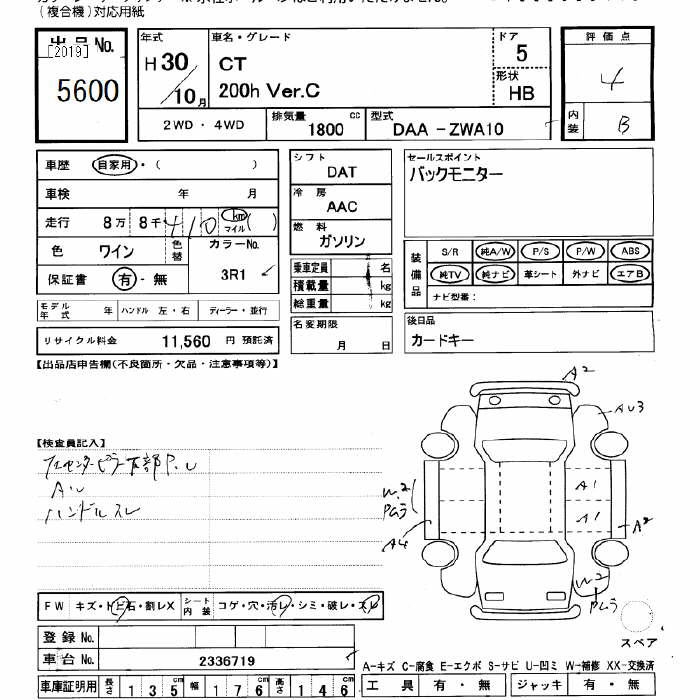 (複合機)対応用紙
出品No.
[2019]
5600
年式
H 30
10月
車名・グレード
CT
200h Ver.C
ドア
5
形状
HB
2WD ・ 4WD
排気量 1800 cc
型式 DAA -ZWA10
評価点
4
内装 B
車歴 自家用・( )
車検 年 月
走行 8万 8千 410 km マイル ( )
色 ワイン
色替
カラーNo.
3R1
保証書 有 - 無
モデル年式 年 ハンドル 左・右 ディーラー・並行
リサイクル料金 11,560 円 預託済
シフト
DAT
冷房
AAC
燃料
ガソリン
乗車定員 名
積載量 kg
総重量 kg
名変期限
月 日
セールスポイント
バックモニター
装備品
S/R 純A/W P/S P/W ABS
純TV 純ナビ 革シート 外ナビ エアB
ナビ型番:
後日品
カードキー
【出品店申告欄(不良箇所・欠品・注意事項等)】
【検査員記入】
A・U
ハンドルスレ
A2
AU3
A1
W2
Pムラ
A1
A2
A4
W2
Pムラ
スペア
FW キズ・トビ石・割レX
シート内装 コゲ・穴・汚レ・シミ・破レ・スレ
登録No.
車台No. 2336719
車庫証明用 長さ 135cm 幅 176cm 高さ 146cm
A-キズ C-腐食 E-エクボ S-サビ U-凹ミ W-補修 XX-交換済
工具 有・無 ジャッキ 有・無